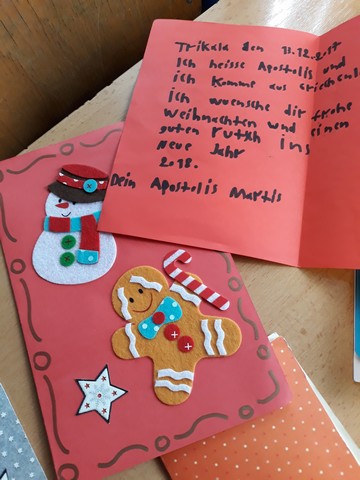 Trikala den 13.12.2017
Ich heisse Apostolis und
ich komme aus Griechenland
ich wuensche dir frohe
Weihnachten und einen
guten rutsch ins
Neue Jahr
2018.
Dein Apostolis Martlis